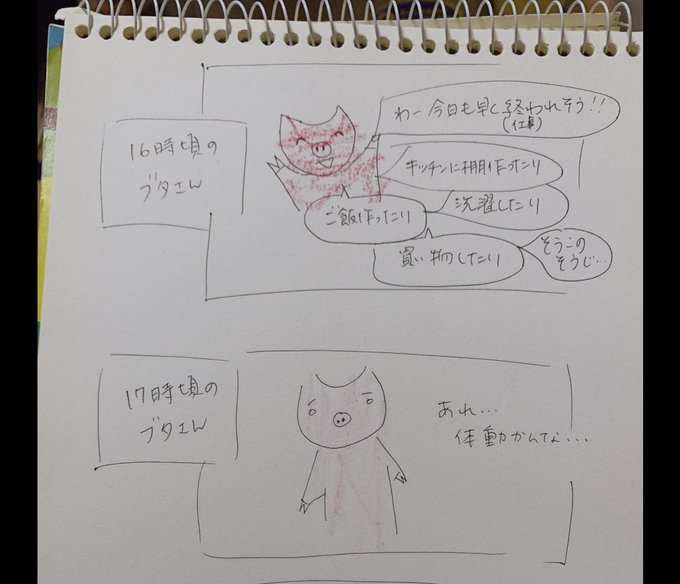 16時頃の
ブタさん
わー今日も早く終われそう!!
(仕事)
キッチンに棚作ったり
洗濯したり
ご飯作ったり
買い物したり
そうこの
そうじ…
17時頃の
ブタさん
あれ…
体動かんな…